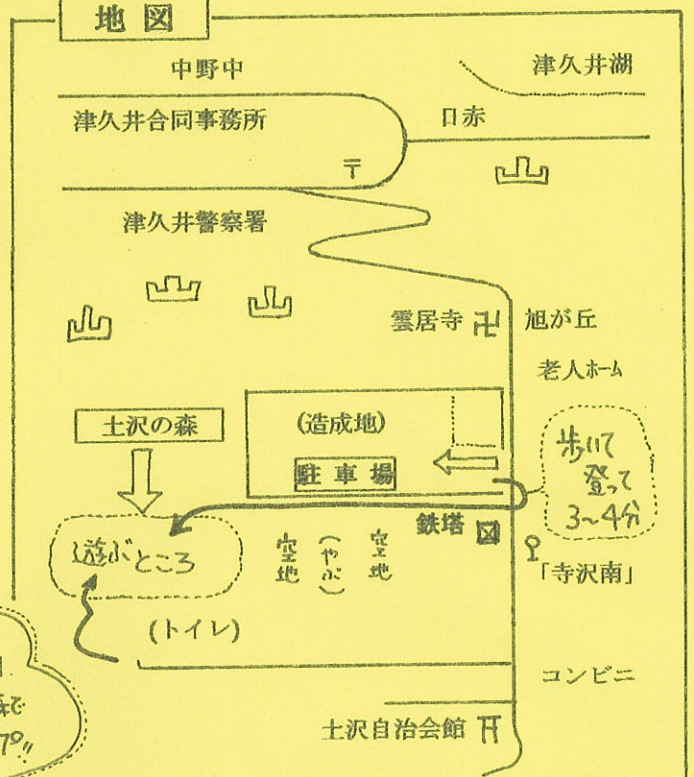 地図
中野中
津久井湖
津久井合同事務所
日赤
〒
津久井警察署
雲居寺 卍
旭が丘
老人ホーム
土沢の森
(造成地)
駐車場
歩いて
登って
3〜4分
鉄塔
遊ぶところ
空地
(やぶ)
空地
「寺沢南」
(トイレ)
コンビニ
土沢自治会館